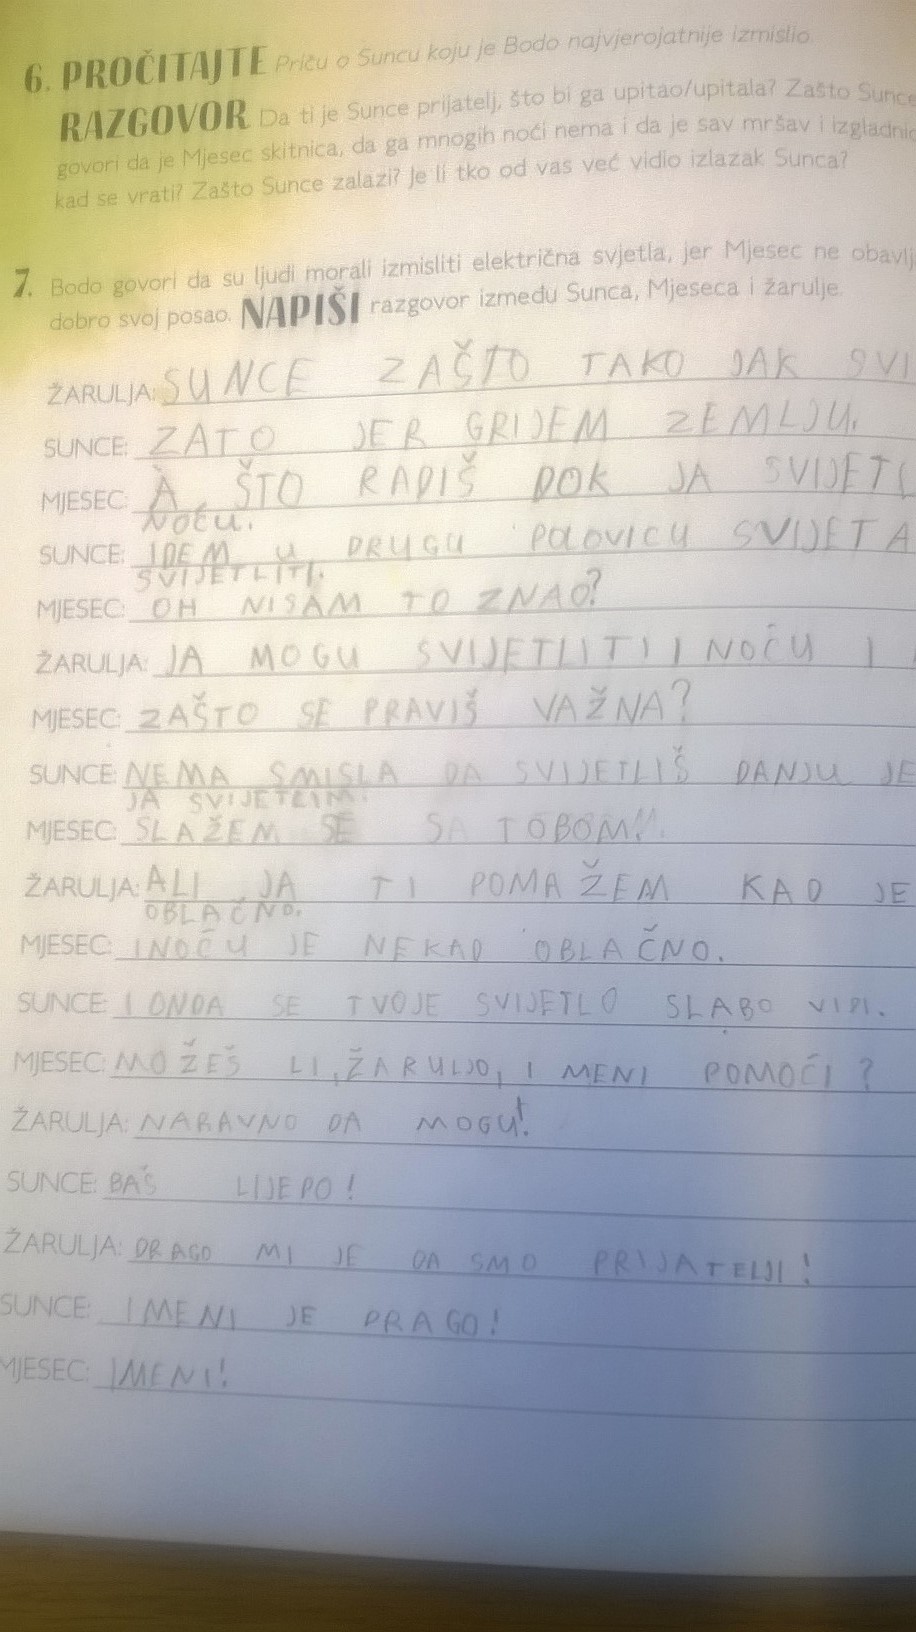 6. PROČITAJTE Priču o Suncu koju je Bodo najvjerojatnije izmislio.
RAZGOVOR Da ti je Sunce prijatelj, što bi ga upitao/upitala? Zašto Sunce
govori da je Mjesec skitnica, da ga mnogih noći nema i da je sav mršav i
kad se vrati? Zašto Sunce zalazi? Je li tko od vas već vidio izlazak Sunca?
7. Bodo govori da su ljudi morali izmisliti električna svjetla, jer Mjesec ne
dobro svoj posao. NAPIŠI razgovor između Sunca, Mjeseca i žarulje.
ŽARULJA: SUNCE ZAŠTO TAKO JAK
SUNCE: ZATO JER GRIJEM ZEMLJU.
MJESEC: A ŠTO RADIŠ DOK JA
NOĆU.
SUNCE: IDEM U DRUGU POLOVICU SVIJETA
SVIJETLITI.
MJESEC: OH NISAM TO ZNAO?
ŽARULJA: JA MOGU SVIJETLITI I NOĆU I
MJESEC: ZAŠTO SE PRAVIŠ VAŽNA?
SUNCE: NEMA SMISLA DA SVIJETLIŠ DANJU JE
JA SVIJETLIM.
MJESEC: SLAŽEM SE SA TOBOM!!.
ŽARULJA: ALI JA TI POMAŽEM KAO JE
OBLAČNO.
MJESEC: I NOĆU JE NEKAD OBLAČNO.
SUNCE: I ONDA SE TVOJE SVIJETLO SLABO VIDI.
MJESEC: MOŽEŠ LI, ŽARULJO, I MENI POMOĆI?
ŽARULJA: NARAVNO DA MOGU!
SUNCE: BAŠ LIJEPO!
ŽARULJA: DRAGO MI JE DA SMO PRIJATELJI!
SUNCE: I MENI JE DRAGO!
MJESEC: I MENI!